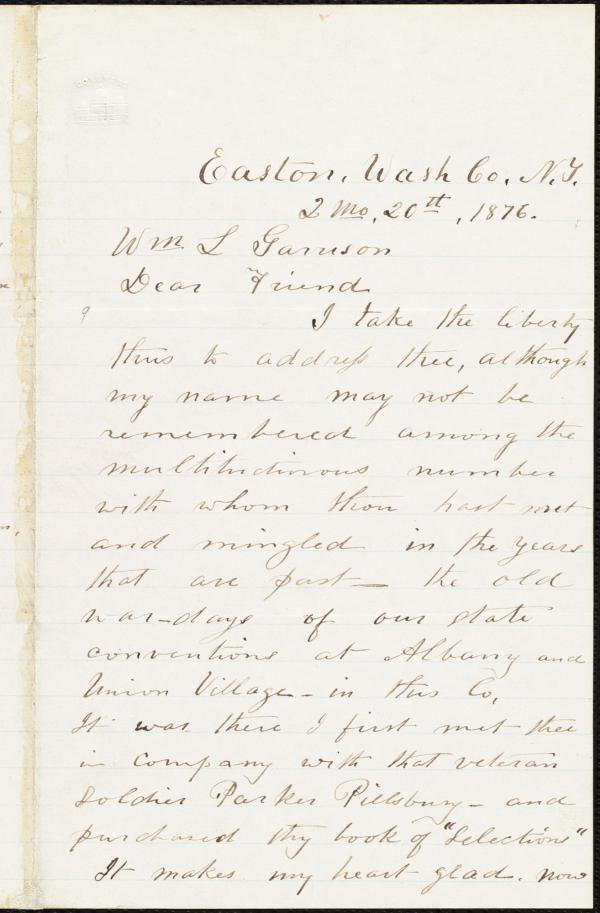 Easton, Wash Co, N.Y.
2 Mo, 20th, 1876.
Wm L Garrison
Dear Friend
I take the liberty
thus to address thee, although
my name may not be
remembered among the
multitudinous number
with whom thou hast met
and mingled in the years
that are past — the old
war-days of our state
conventions at Albany and
Union Village - in this Co,
It was there I first met thee
in company with that veteran
soldier Parker Pillsbury - and
purchased thy book of "Selections"
It makes my heart glad. now